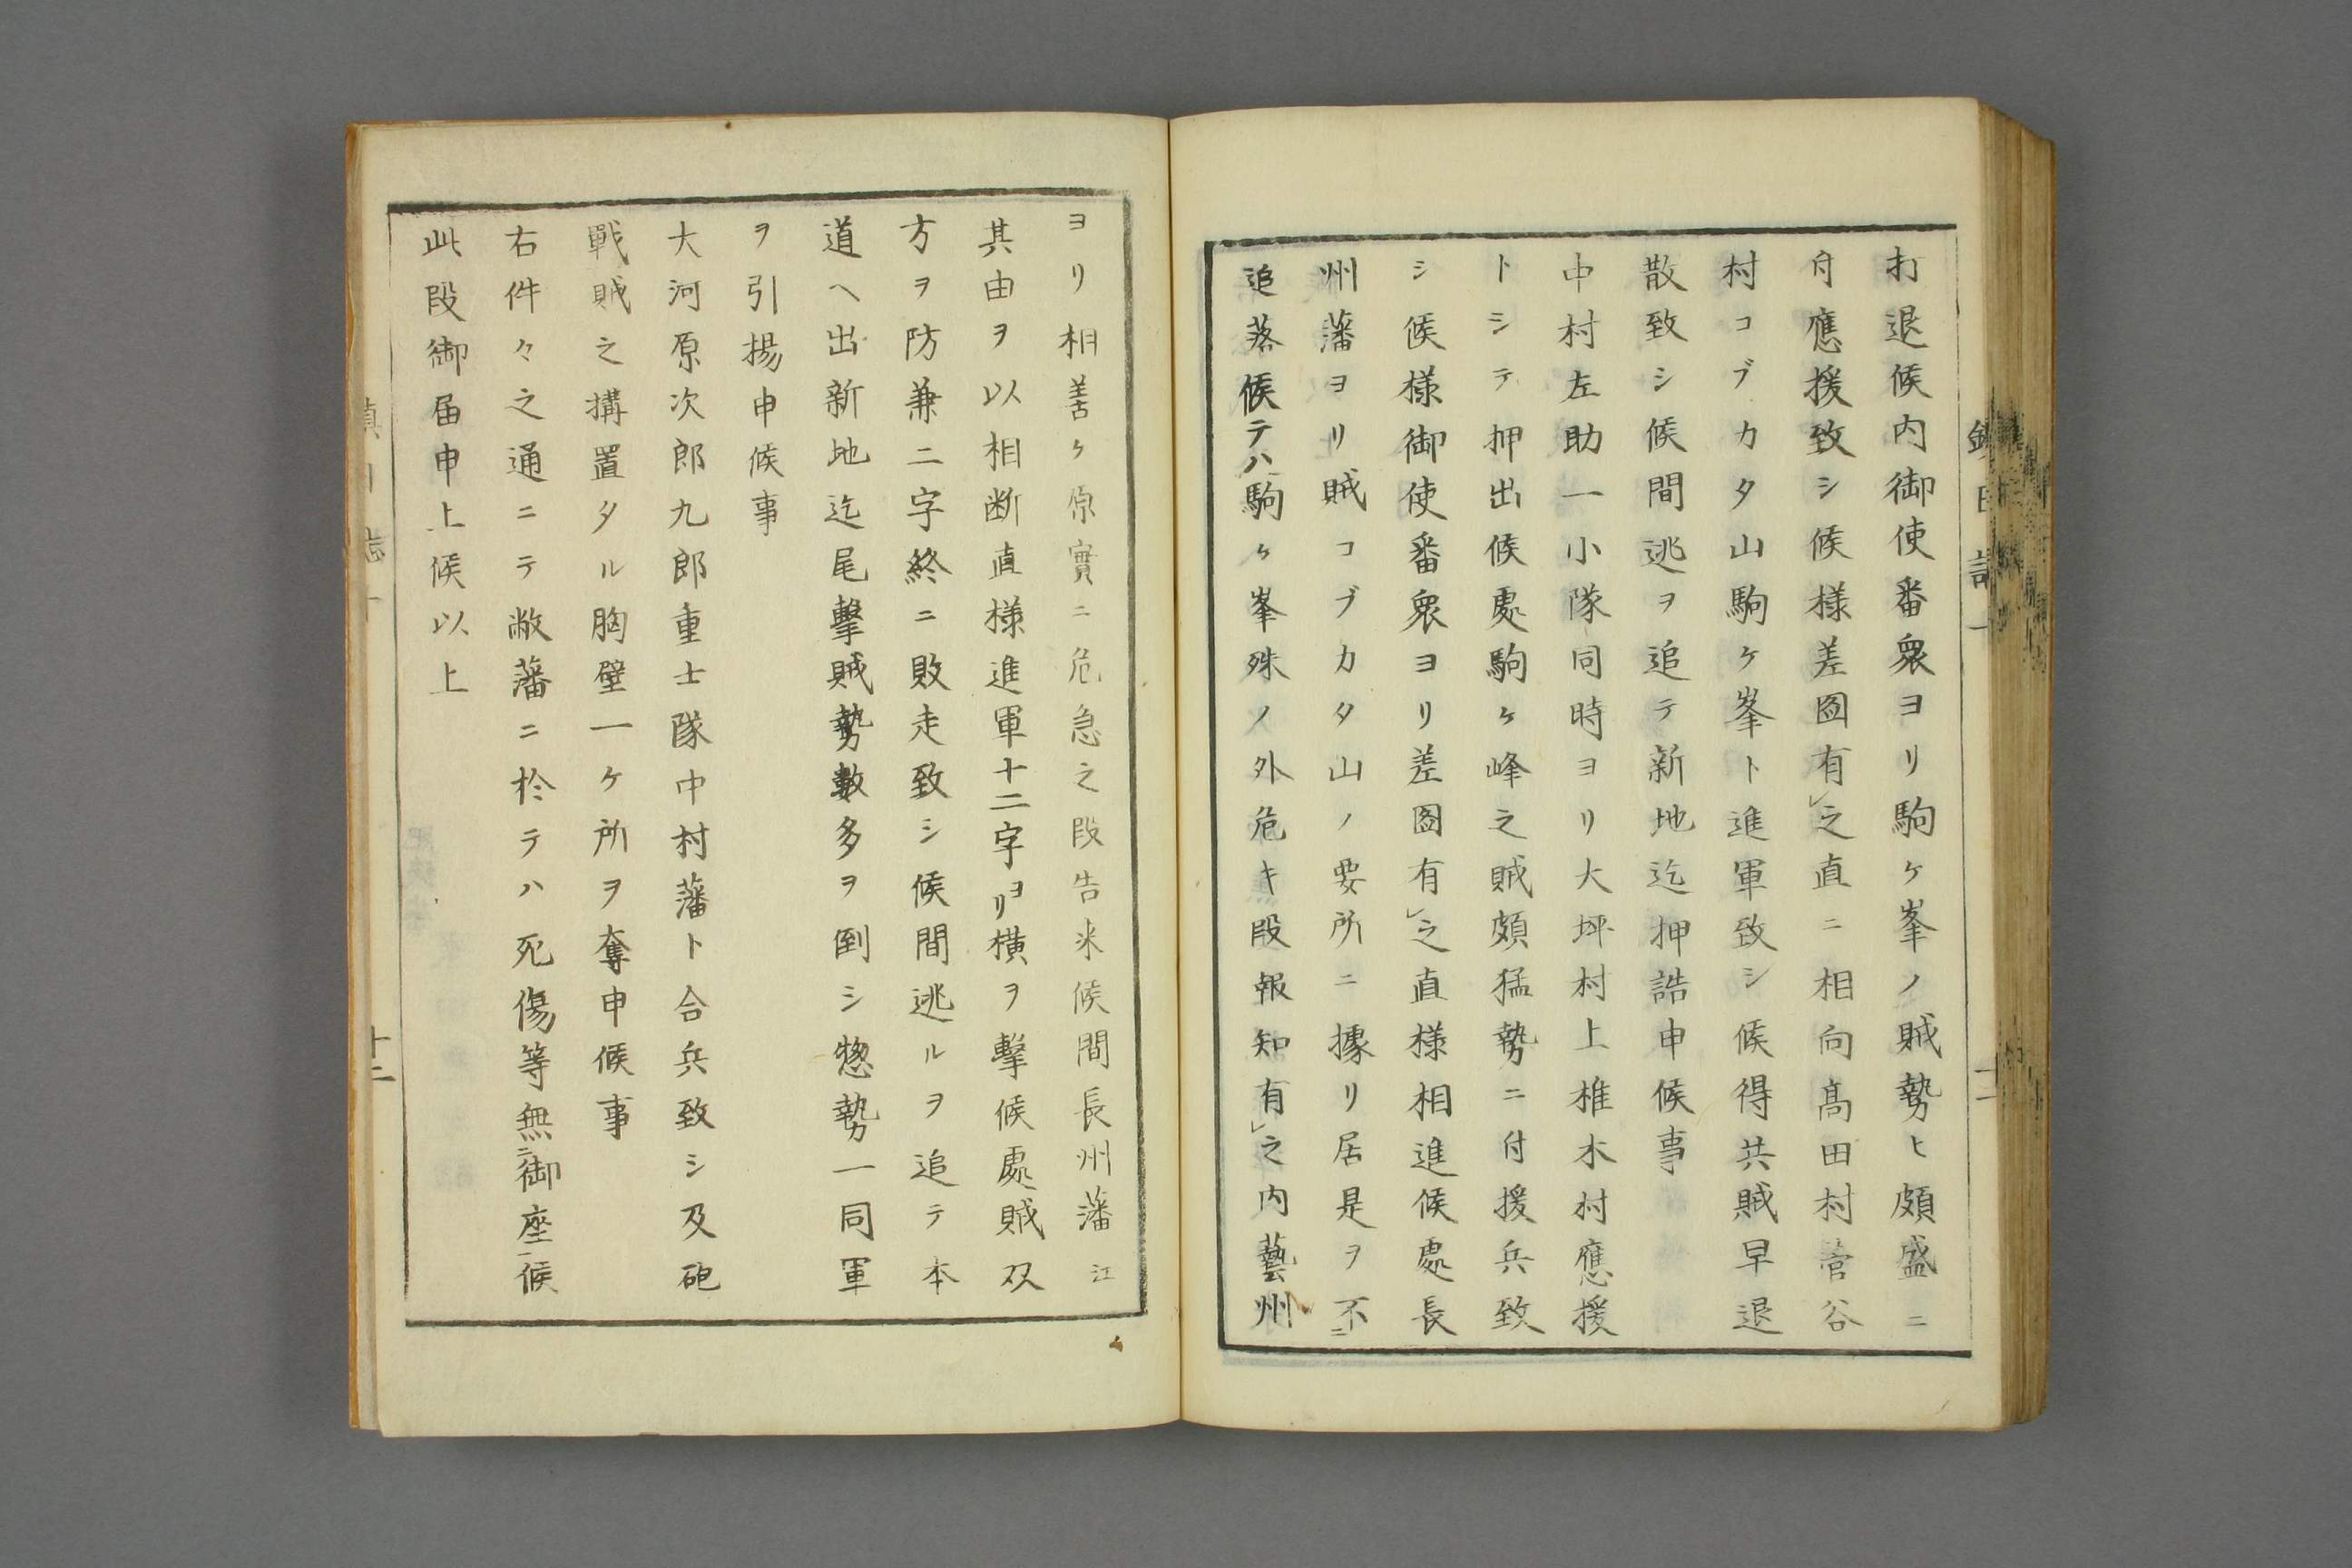 打退候内御使番衆ヨリ駒ケ峯ノ賊勢ヒ頗盛ニ
付應援致シ候様差圖有レ之直ニ相向髙田村菅谷
村コブカタ山駒ケ峯ト進軍致シ候得共賊早退
散致シ候間逃ヲ追テ新地迄押詰申候事
中村左助一小隊同時ヨリ大坪村上椎木村應援
トシテ押出候處駒ケ峰之賊頗猛勢ニ付援兵致
シ候様御使番衆ヨリ差圖有レ之直様相進候處長
州藩ヨリ賊コブカタ山ノ要所ニ據リ居是ヲ不ニ
追落候テハ駒ケ峯殊ノ外危キ段報知有レ之内藝州
ヨリ相善ケ原實ニ危急之段告来候間長州藩江
其由ヲ以相断直様進軍十二字ヨリ横ヲ撃候處賊双
方ヲ防兼二字終ニ敗走致シ候間逃ルヲ追テ本
道ヘ出新地迄尾撃賊勢數多ヲ倒シ惣勢一同軍
ヲ引揚申候事
大河原次郎九郎重士隊中村藩ト合兵致シ及砲
戰賊之搆置タル胸壁一ケ所ヲ奪申候事
右件々之通ニテ敝藩ニ於テハ死傷等無ニ御座一候
此段御届申上候以上
十二